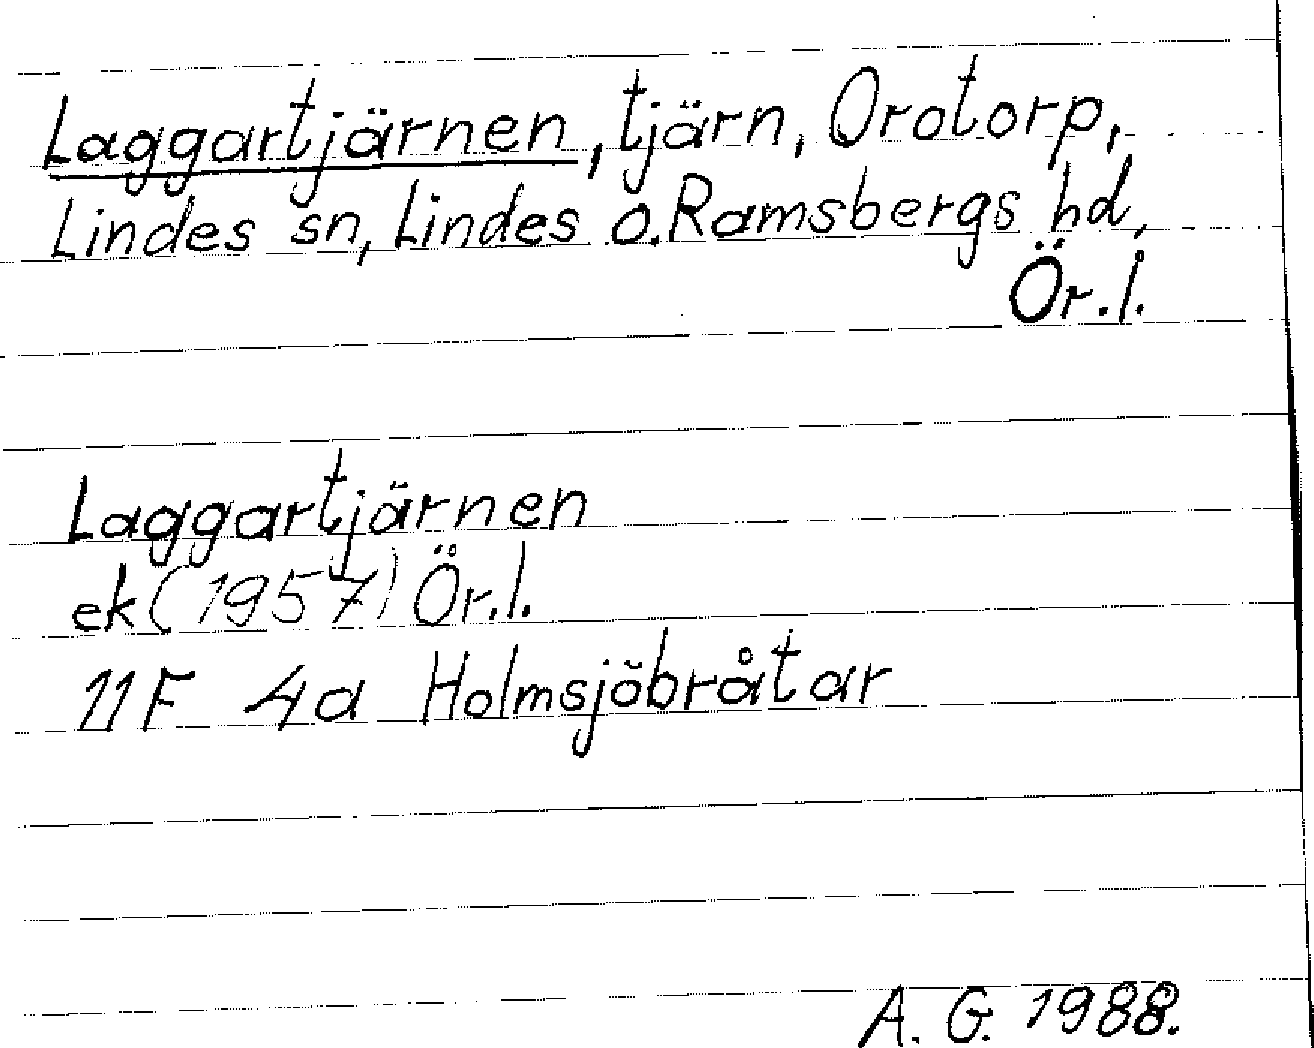 Laggartjärnen, tjärn, Orotorp,
Lindes sn, Lindes o. Ramsbergs hd,
Ör.l.
Laggartjärnen
ek (1957) Ör.l.
11F 4a Holmsjöbråtar
A. G. 1988.